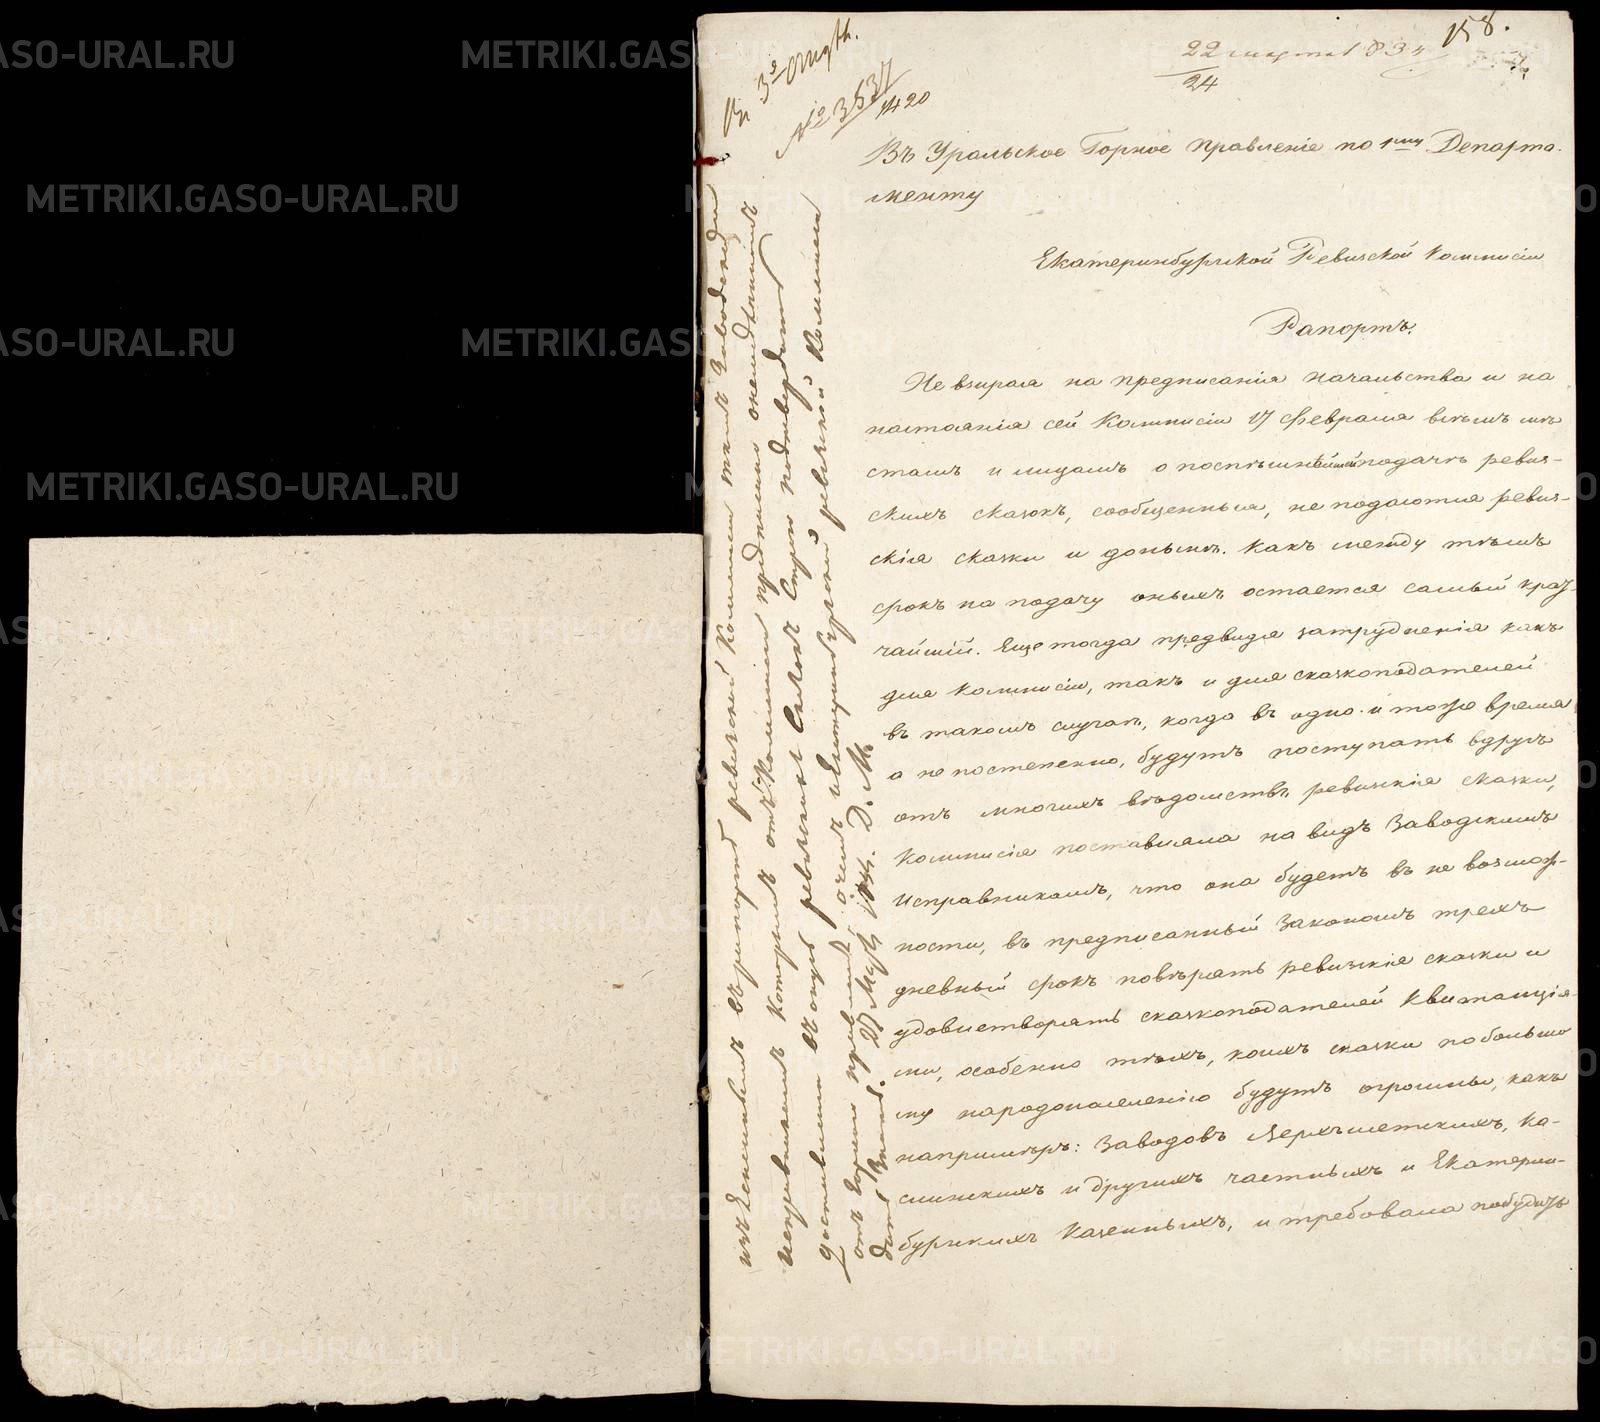 158.
22 марта 1834
24
Въ 3е Отдѣл.
№ 3537
1420
Въ Уральское Горное Правленіе по 1му Департа-
менту
Екатеринбургской Ревизской Коммисіи
Рапортъ.
Не взирая на предписанія начальства и на
настоянія сей Коммисіи 17 Февраля всѣмъ мѣ
стамъ и лицамъ о поспѣшнѣйшей подачѣ ревиз-
скихъ сказокъ, сообщенныя, не подаются ревиз-
скія сказки и донынѣ. Какъ между тѣмъ
срокъ на подачу оныхъ остается самый крат-
чайшій. Еще тогда предвидя затрудненія какъ
для Коммисіи, такъ и для сказкоподателей
въ такомъ случаѣ, когда въ одно и тоже время
а не постепенно, будутъ поступать вдругъ
отъ многихъ вѣдомствъ ревизскія сказки,
Коммисія поставляла на видъ Заводскимъ
Исправникамъ, что она будетъ въ не возмож-
ности, въ предписанный Закономъ трехъ
дневный срокъ повѣрять ревизскія сказки и
удовлетворять сказкоподателей квитанція-
ми, особенно тѣхъ, коихъ сказки по большо
му народонаселенію будутъ огромны, какъ
напримѣръ: Заводовъ Верхъисетскихъ, Ка-
слинскихъ и другихъ частныхъ и Екатерин-
бургскихъ Казенныхъ, и требовала побудить
ревизской Коммисіи
Исправникамъ которымъ отъ Коммисіи предписано
доставить въ оную ревизскія сказки Строго подтвердить
отъ Горнаго правленія о чемъ и Екатеринбургской ревизской Коммисіи
дать знать. 27 Марта 1834. Д. М.